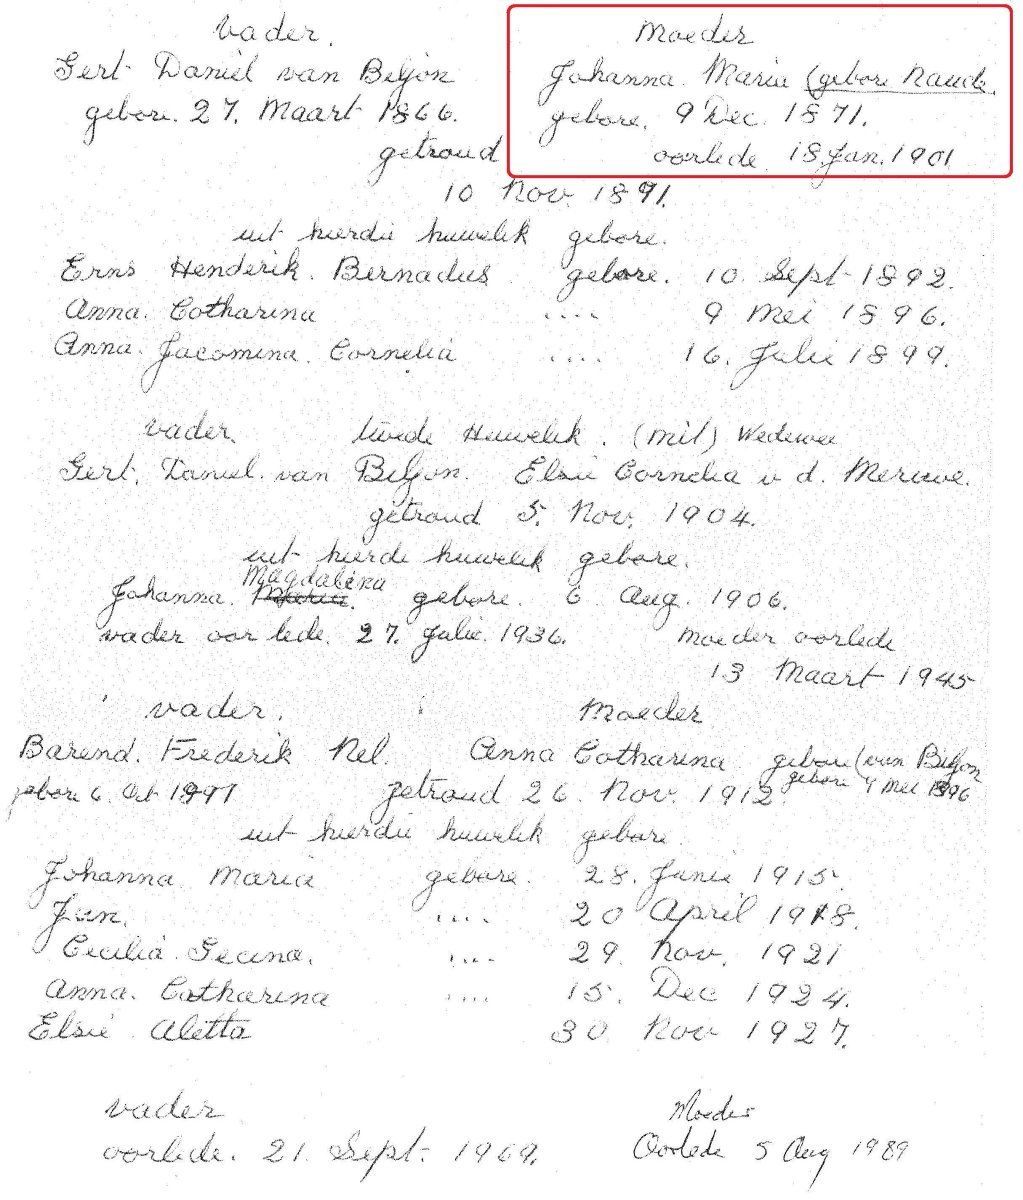 vader. Moeder
Gert Daniel van Biljon Johanna Maria (gebore Naude.
gebore. 27. Maart 1866. gebore. 9 Dec. 1871.
getroud oorlede 18 Jan. 1901
10 Nov. 1891.
uit hierdie huwelik gebore.
Erns Henderik. Bernadus gebore. 10 Sept 1892.
Anna. Catharina .... 9 Mei 1896.
Anna. Jacomina. Cornelia .... 16. Julie 1899.
vader. twede Huwelik. (met) Wedewee
Gert. Daniel. van Biljon. Elsie Cornelia v d. Merwe.
getroud 5. Nov. 1904.
uit hierdi huwelik gebore.
Magdalena
Johanna. Maria. gebore. 6 Aug. 1906.
vader oorlede. 27. Julie. 1936. Moeder oorlede
13 Maart 1945
vader. Moeder
Barend. Frederik Nel. Anna Catharina gebore (van Biljon
gebore 9 Mei 1896
gebore 6. Oct getroud 26. Nov. 1912.
uit hierdie huwelik gebore
Johanna Maria gebore. 28. Junie 1915.
Jan. .... 20 April 1918.
Cecilia Gecina. .... 29 Nov. 1921
Anna. Catharina .... 15. Dec 1924.
Elsie Aletta 30 Nov 1927.
vader Moeder
oorlede. 21. Sept. 1969. Oorlede 5 Aug 1989